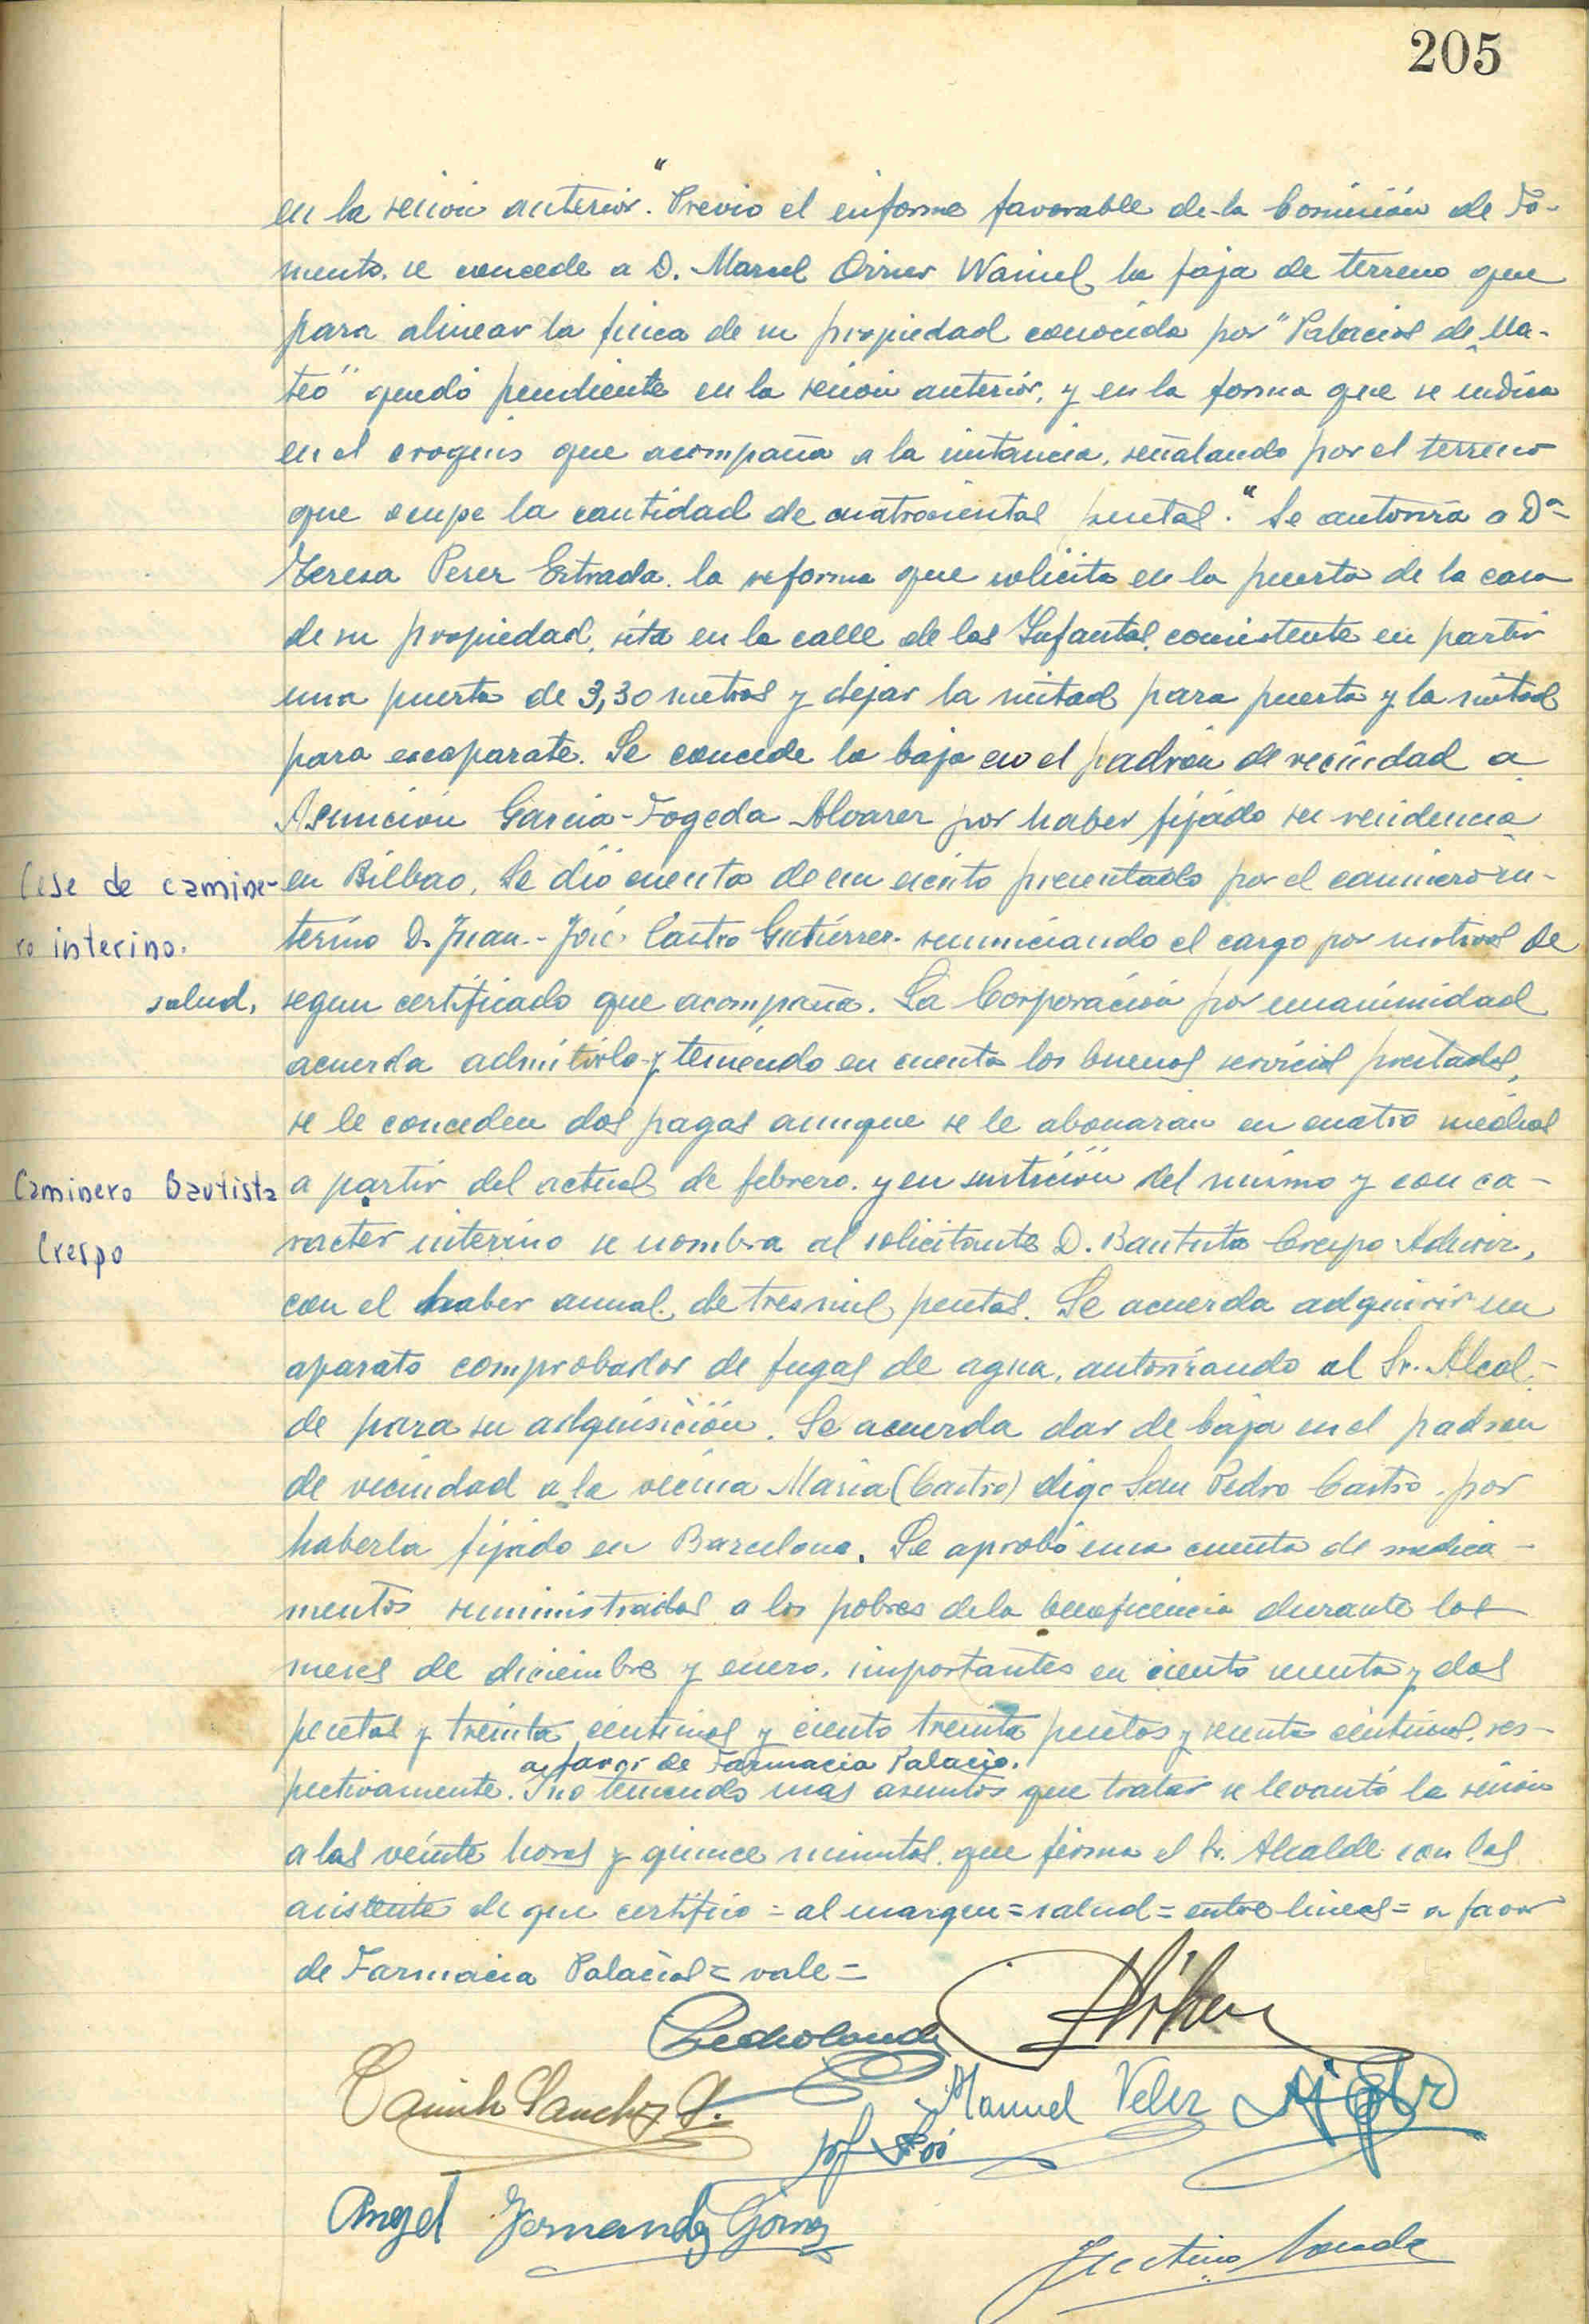 205
en la sesión anterior." Previo el informe favorable de la Comisión de Fo-
mento, se concede a D. Marcel Wainel la faja de terreno que
para alinear la finca de su propiedad conocida por "Palacios de Ma-
teo" quedó pendiente en la sesión anterior, y en la forma que se indica
en el croquis que acompaña a la instancia, señalando por el terreno
que ocupe la cantidad de cuatrocientas pesetas." Se autoriza a Dª
Teresa Perez Estrada, la reforma que solicita en la puerta de la casa
de su propiedad, sita en la calle de las Infantas, consistente en partir
una puerta de 3,30 metros y dejar la mitad para puerta y la mitad
para escaparate. Se concede la baja en el padrón de vecindad a
Asunción Garcia-Fogeda Alvarez por haber fijado su residencia
Cese de camine-
ro interino.
en Bilbao. Se dió cuenta de un escrito presentado por el caminero in-
terino D. Juan-José Castro Gutiérrez renunciando el cargo por motivos de
salud, segun certificado que acompaña. La Corporación por unanimidad
acuerda admitirla y teniendo en cuenta los buenos servicios prestados,
se le conceden dos pagas aunque se le abonarán en cuatro medias
Caminero Bautista
Crespo
a partir del actual de febrero. y en sustición del mismo y con ca-
racter interino se nombra al solicitante D. Bautista Crespo
con el haber anual de tres mil pesetas. Se acuerda adquirir un
aparato comprobador de fugas de agua, autorizando al Sr. Alcal-
de para su adquisición. Se acuerda dar de baja en el padron
de vecindad a la vecina Maria (Castro) digo San Pedro Castro, por
haberla fijado en Barcelona. Se aprobó una cuenta de medica-
mentos suministrados a los pobres de la beneficencia durante los
meses de diciembre y enero, importantes en ciento y dos
pesetas y treinta centimos y ciento treinta pesetas y centimos, res-
a favor de Farmacia Palacio.
pectivamente. Y no teniendo mas asuntos que tratar se levantó la sesión
a las veinte horas y quince minutos, que firma el Sr. Alcalde con los
asistente de que certifico = al margen = salud = entre lineas = a favor
de Farmacia Palacios = vale =
Sanchez
Manuel Velez
Angel Fernandez Gómez